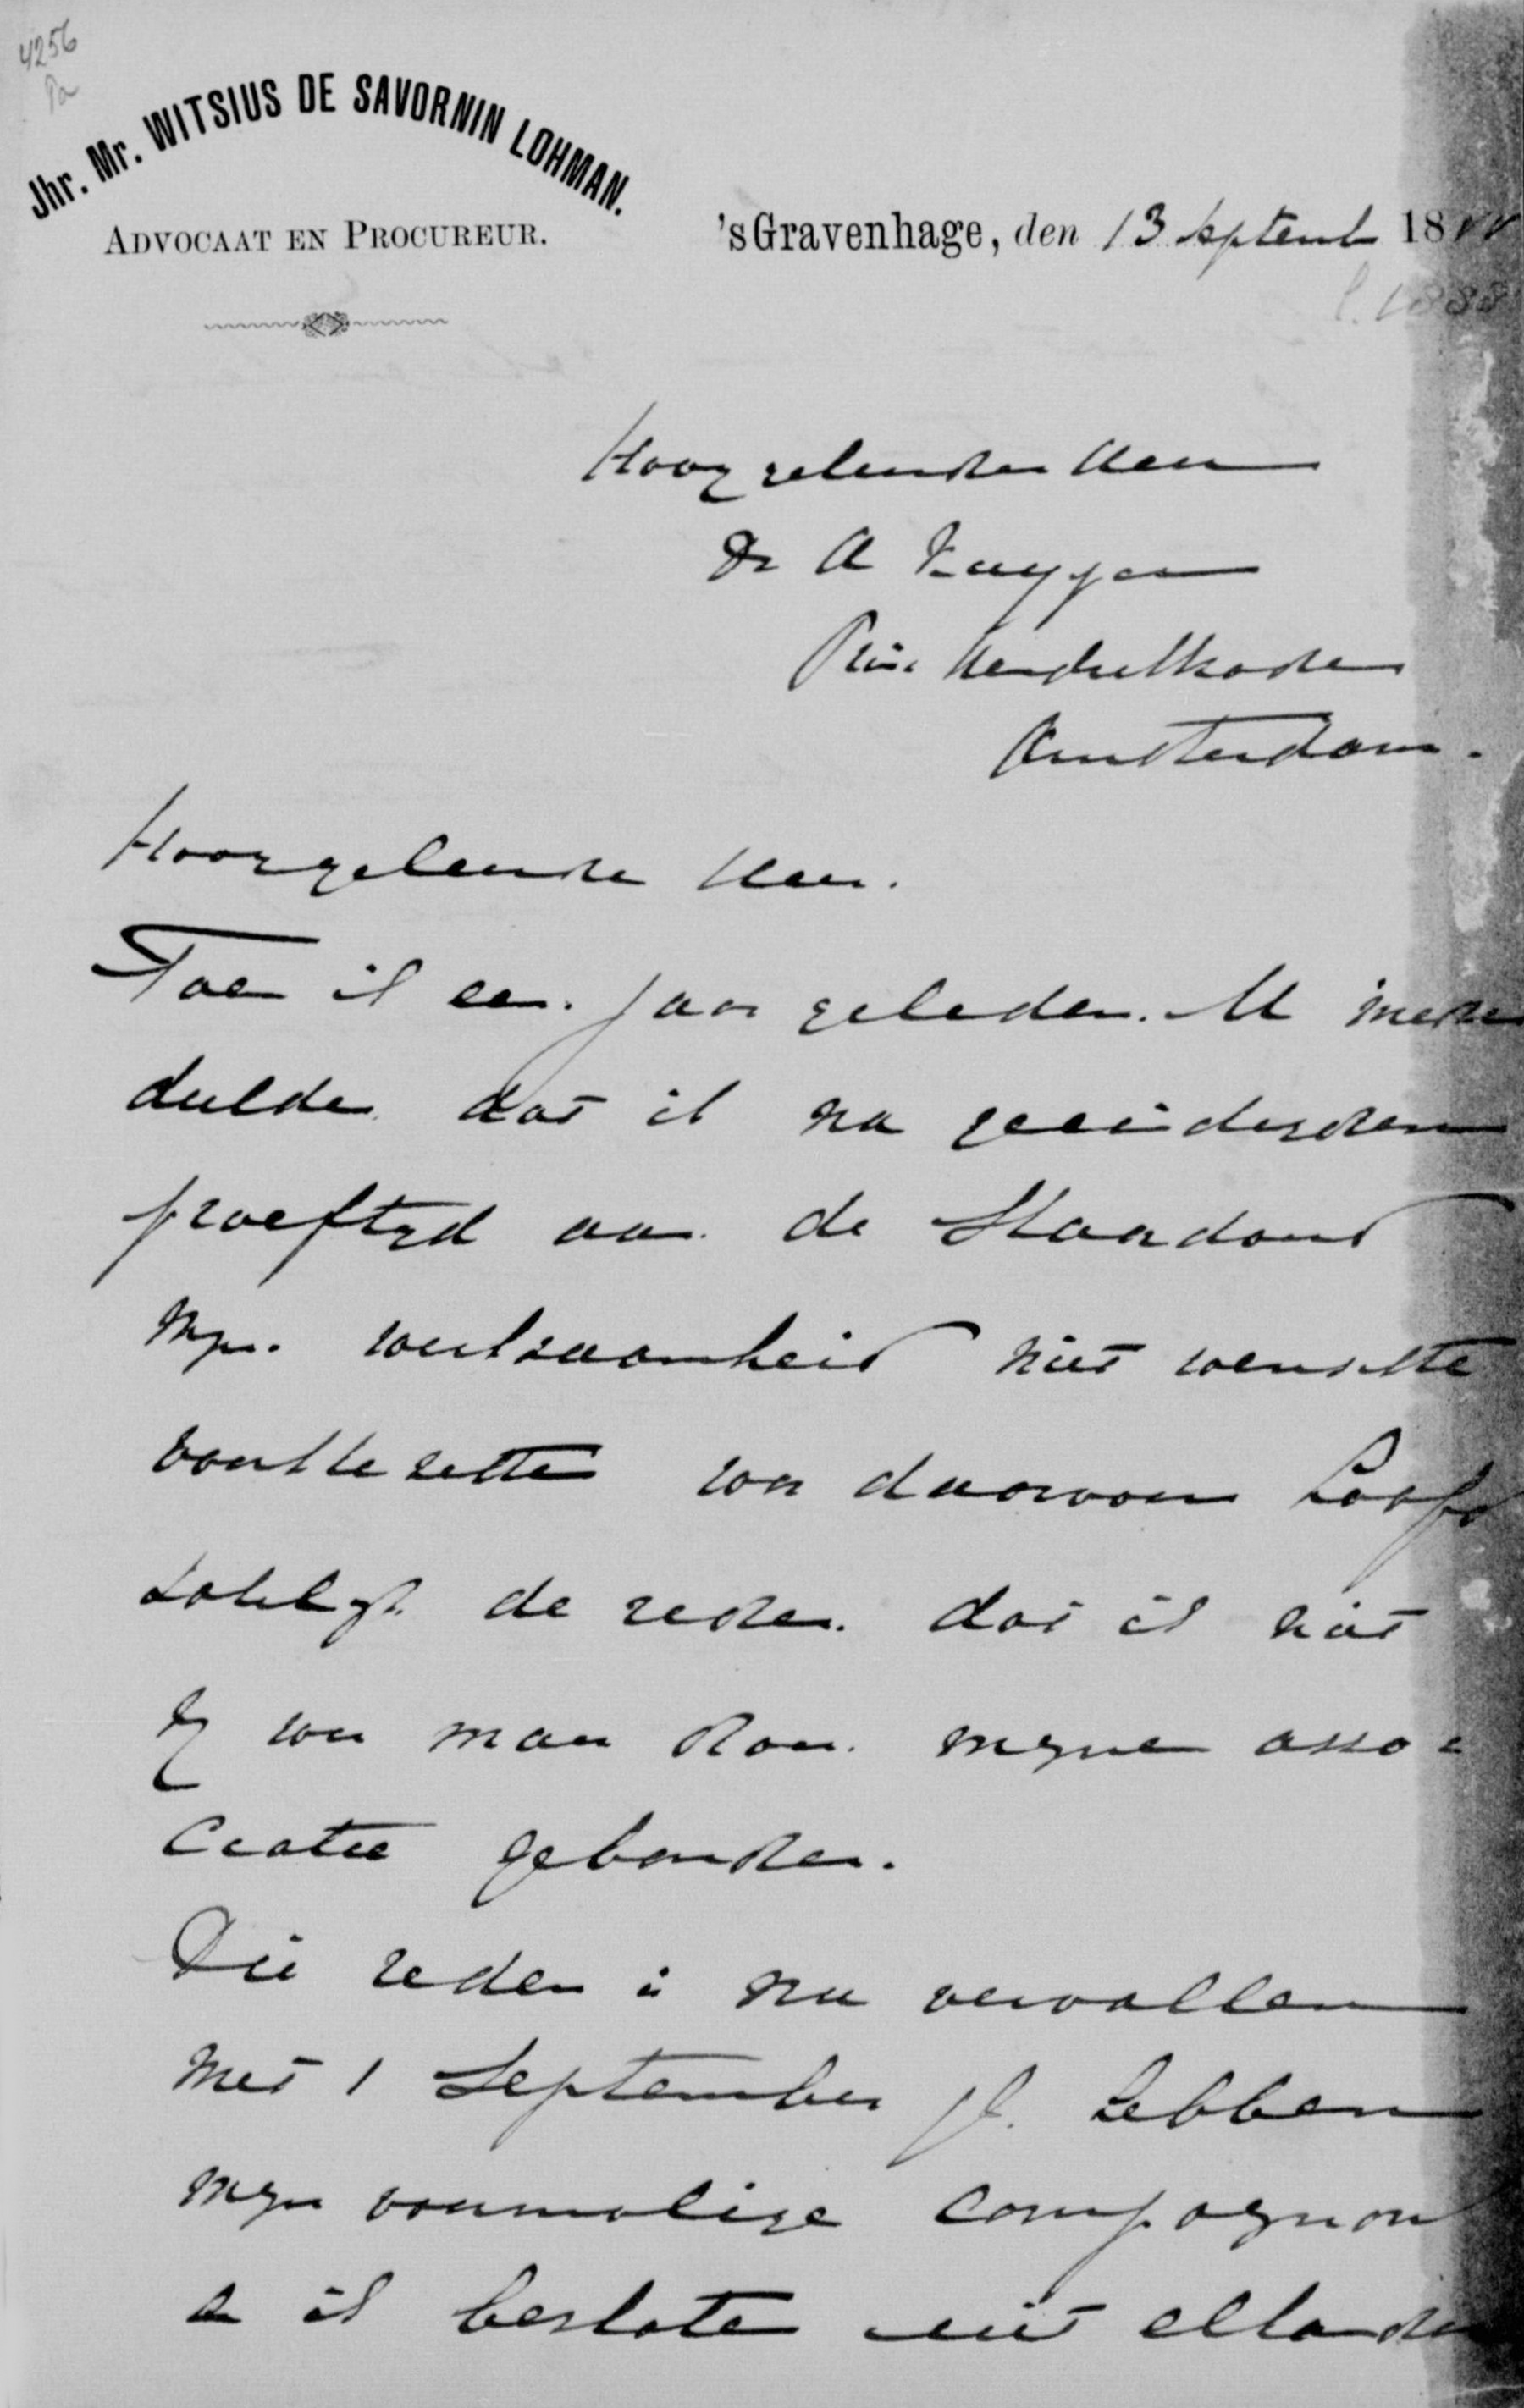 4256
Pa
Jhr. Mr. WITSIUS DE SAVORNIN LOHMAN.
ADVOCAAT EN PROCUREUR.
'sGravenhage, den 13 Septemb 1888
1888
Hooggeleerden Heer
Dr A Kuyper
Prins Hendrikkade
Amsterdam.
Hooggeleerde Heer.
Toen ik een jaar geleden U mede
deelde dat ik na geeindigden
proeftyd aan de Standaard
myn werkzaamheid niet wenschte
voort te zetten was daarvoor hoofd
zakelyk de reden dat ik niet
vry was maar door myne asso-
ciatie gebonden.
Die reden is nu vervallen
Met 1 September jl. hebben
myn voormalige compagnon
en ik besloten uit elkander